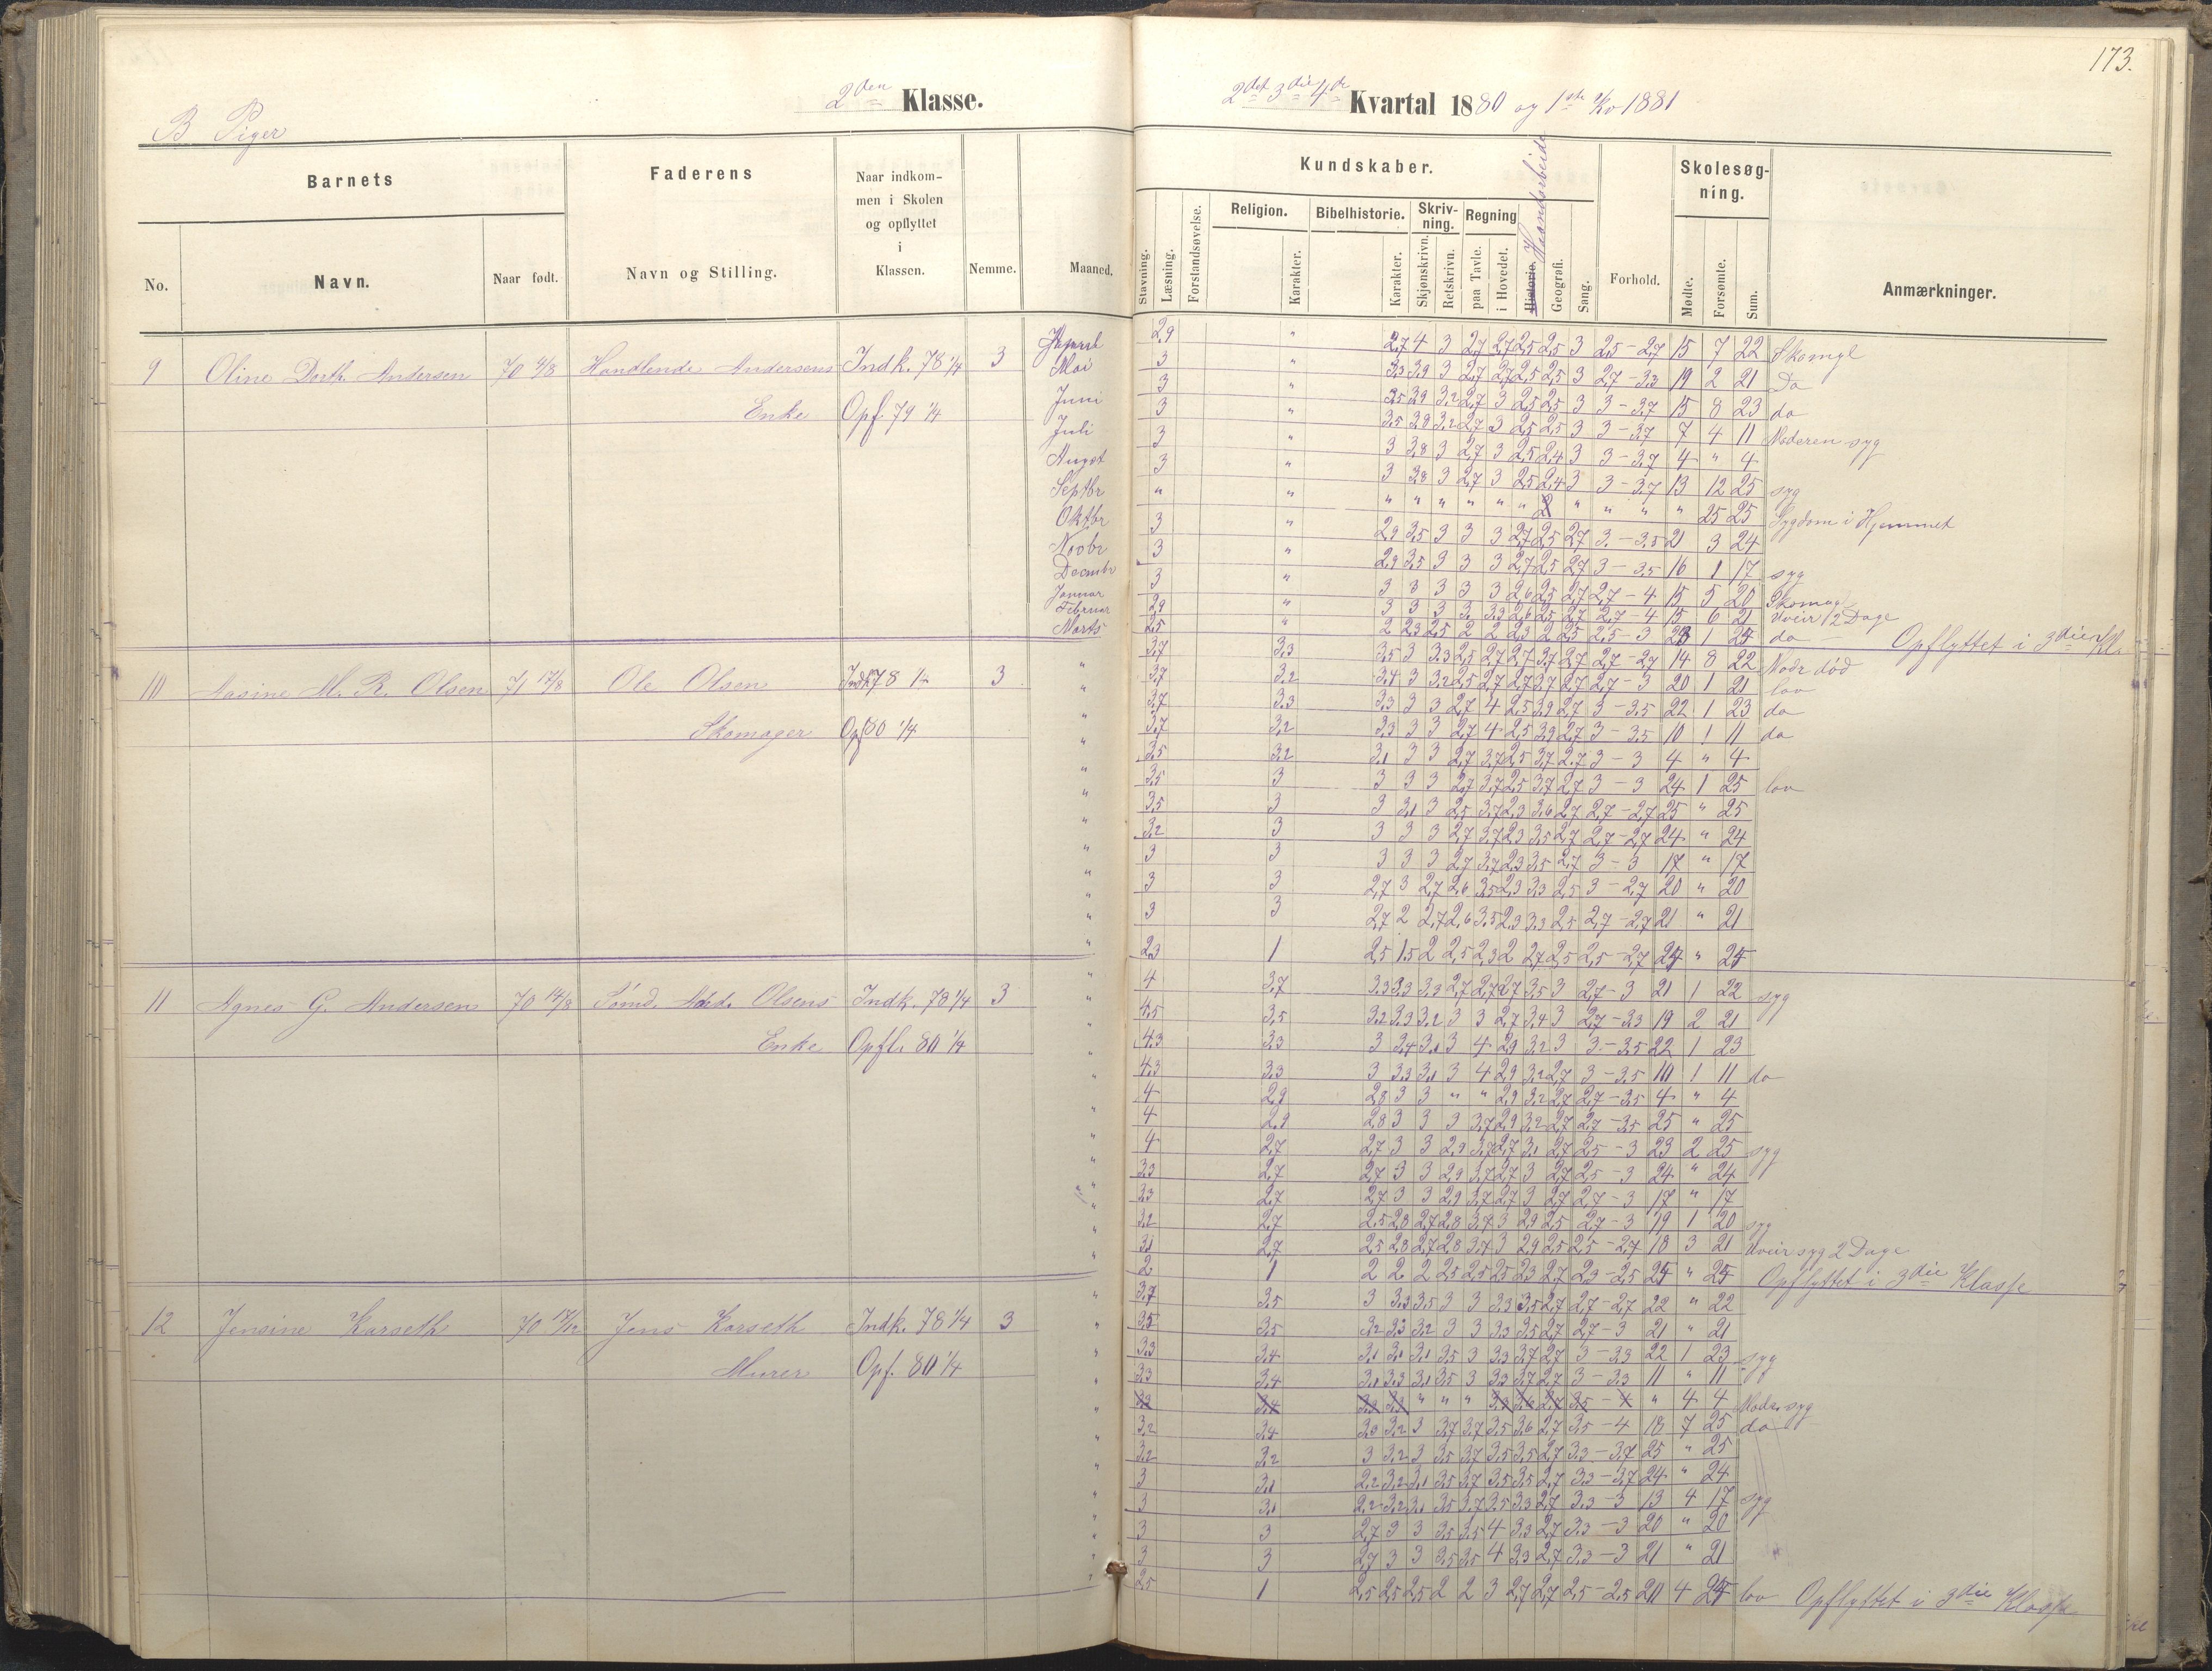 173.
2den Klasse.
2det 3die 4de Kvartal 1880 og 1ste Kv 1881
B Piger
Barnets
Faderens
Naar indkom-
men i Skolen
og opflyttet
i
Klassen.
Nemme.
Maaned.
No.
Navn.
Naar født.
Navn og Stilling.
Kundskaber.
Skolesøg-
ning.
Stavning.
Læsning.
Forstandsøvelse.
Religion.
Karakter.
Bibelhistorie.
Karakter.
Skriv-
ning.
Skjønskrivn.
Retskrivn.
Regning
paa Tavle.
i Hovedet.
Historie.
Haandarbeide
Geografi.
Sang.
Forhold.
Mødte.
Forsømte.
Sum.
Anmærkninger.
9 Oline Dorth. Andersen 70 4/8 Handlende Andersens Indk. 78 1/4 3
Enke Opf. 79 1/4
Mai
Juni
Juli
August
Septbr
Oktbr
Novbr
Decmbr
Januar
Februar
Marts
2,9 " 2,7 4 3 2,7 2,7 2,5 2,5 3 2,5-2,7 15 7 22 Skomgl
3 " 3,3 3,9 3 2,7 2,7 2,5 2,5 3 2,7-3,3 19 2 21 Do
3 " 3,5 3,9 3,2 2,7 3 2,5 2,5 3 3-3,7 15 8 23 do
3 " 3,5 3,8 3,2 2,7 3 2,5 2,5 3 3-3,7 7 4 11 Moderen syg
3 " 3 3,8 3 2,7 3 2,5 2,4 3 3-3,7 4 " 4
3 " 3 3,8 3 2,7 3 2,5 2,4 3 3-3,7 13 12 25 syg
" " " " " " " " " " " " 25 25 Sygdom i Hjemmet
3 " 2,9 3,5 3 3 3 2,7 2,5 2,7 3-3,5 21 3 24
3 " 2,9 3,5 3 3 3 2,7 2,5 2,7 3-3,5 16 1 17 syg
3 " 3 3 3 3 3 2,6 2,5 2,7 2,7-4 15 5 20 Skomagl
2,9 " 3 3 3 3 3,3 2,6 2,5 2,7 2,7-4 15 6 21 Uveir 2 Dage
2,5 " 2 2,3 2,5 2 2 2,3 2 2,5 2,5-3 23 1 24 do Opflyttet i 3die Kl.
10 Nasine M. R. Olsen 71 17/8 Ole Olsen Indk 78 1/4 3
Skomager Opf 80 1/4
3,7 3,3 3,5 3 3,3 2,5 2,7 2,7 3,7 2,7 2,7-2,7 14 8 22 Modr død
3,7 3,2 3,4 3 3,2 2,5 2,7 2,7 3,7 2,7 2,7-3 20 1 21 lov
3,7 3,3 3,3 3 3 2,7 4 2,5 3,9 2,7 3-3,5 22 1 23 do
3,7 3,2 3,3 3 3 2,7 4 2,5 3,9 2,7 3-3,5 10 1 11 do
3,5 3,2 3,1 3 3 2,7 3,7 2,5 3,7 2,7 3-3 4 " 4
3,5 3 3 3 3 2,7 3,7 2,5 3,7 2,7 3-3 24 1 25 lov
3,5 3 3 3,1 3 2,5 3,7 2,3 3,6 2,7 2,7-2,7 25 " 25
3,2 3 3 3 3 2,7 3,7 2,3 3,5 2,7 2,7-2,7 24 " 24
3 3 3 3 3 2,7 3,7 2,3 3,5 2,7 3-3 17 " 17
3 3 2,7 3 2,7 2,6 3,5 2,3 3,3 2,5 3-2,7 20 " 20
3 3 2,7 2 2,7 2,6 3,5 2,3 3,3 2,5 2,7-2,7 21 " 21
2,3 1 2,5 1,5 2 2,5 2,3 2 2,7 2,5 2,5-2,7 24 " 24
11 Agnes G. Andersen 70 14/8 Sømd. And. Olsens Indk. 78 1/4 3
Enke Opfl. 80 1/4
4 3,7 3,3 3,3 3,3 2,7 2,7 2,7 3,5 3 2,7-3 21 1 22 syg
4,5 3,5 3,2 3,3 3,2 3 3 2,7 3,4 3 2,7-3,3 19 2 21
4,3 3,3 3 3,4 3,1 3 4 2,9 3,2 3 3-3,5 22 1 23
4,3 3,3 3 3,3 3,1 3 4 2,9 3,2 2,7 3-3,5 10 1 11 do
4 2,9 2,8 3 3 " " 2,9 3,2 2,7 2,7-3,5 4 " 4
4 2,9 2,8 3 3 3 3,7 2,9 3,2 2,7 2,7-3,5 25 " 25
4 2,7 2,7 3 3 2,9 3,7 2,7 3,1 2,7 2,5-3 23 2 25 syg
3,3 2,7 2,7 3 3 2,9 3,7 2,7 3 2,7 2,5-3 24 " 24
3,3 2,7 2,7 3 3 2,9 3,7 2,7 3 2,7 2,7-3 17 " 17
3,2 2,7 2,5 2,8 2,7 2,8 3,7 3 2,9 2,5 2,7-3 19 1 20 syg
3,1 2,7 2,5 2,8 2,7 2,8 3,7 3 2,9 2,5 2,5-2,7 18 3 21 Uveir syg 2 Dage
2 1 2 2 2 2,5 2,5 2,5 2,3 2,7 2,3-2,5 24 " 24 Opflyttet i 3die Klasse
12 Jensine Karseth 70 17/12 Jens Karseth Indk. 78 1/4 3
Murer Opf. 80 1/4
3,7 3,5 3 3,3 3,5 3 3 3,3 3,5 2,7 2,7-2,7 22 " 22
3,5 3,5 3,2 3,3 3,2 3 3 3,3 3,5 2,7 2,7-3 21 " 21
3,3 3,4 3,1 3,1 3,1 3,5 3 3,3 3,7 2,7 3-3,3 22 1 23 syg
3,3 3,4 3,1 3,3 3,1 3,5 3 3,3 3,7 2,7 3-3,3 11 " 11
3,3 3,4 3,3 3,3 " " " 3,3 3,6 2,7 3,5-4 " 4 4 Moder syg
3,2 3,4 3,3 3,2 3 3,7 3,7 3,5 3,6 2,7 3,5-4 18 7 25 do
3,2 3,2 3 3,2 3 3,5 3,7 3,5 3,5 2,7 3,3-3,7 25 " 25
3 3,1 2,2 3,2 3,1 3,5 3,7 3,5 3,5 2,7 3,3-3,7 24 " 24
3 3,1 2,2 3,2 3,1 3,5 3,7 3,5 3,3 2,7 3,3-3 13 4 17 syg
3 3 2,7 3 3 3,5 3,5 4 3,3 2,7 3,3-3 20 " 20
3 3 2,7 3 3 3,5 3,5 4 3,3 2,7 3,3-3 21 " 21
2,5 1 2,5 2,5 2,5 2 2 3 2,7 2,7 2,5-2,5 20 4 24 lov Opflyttet i 3die Klasse